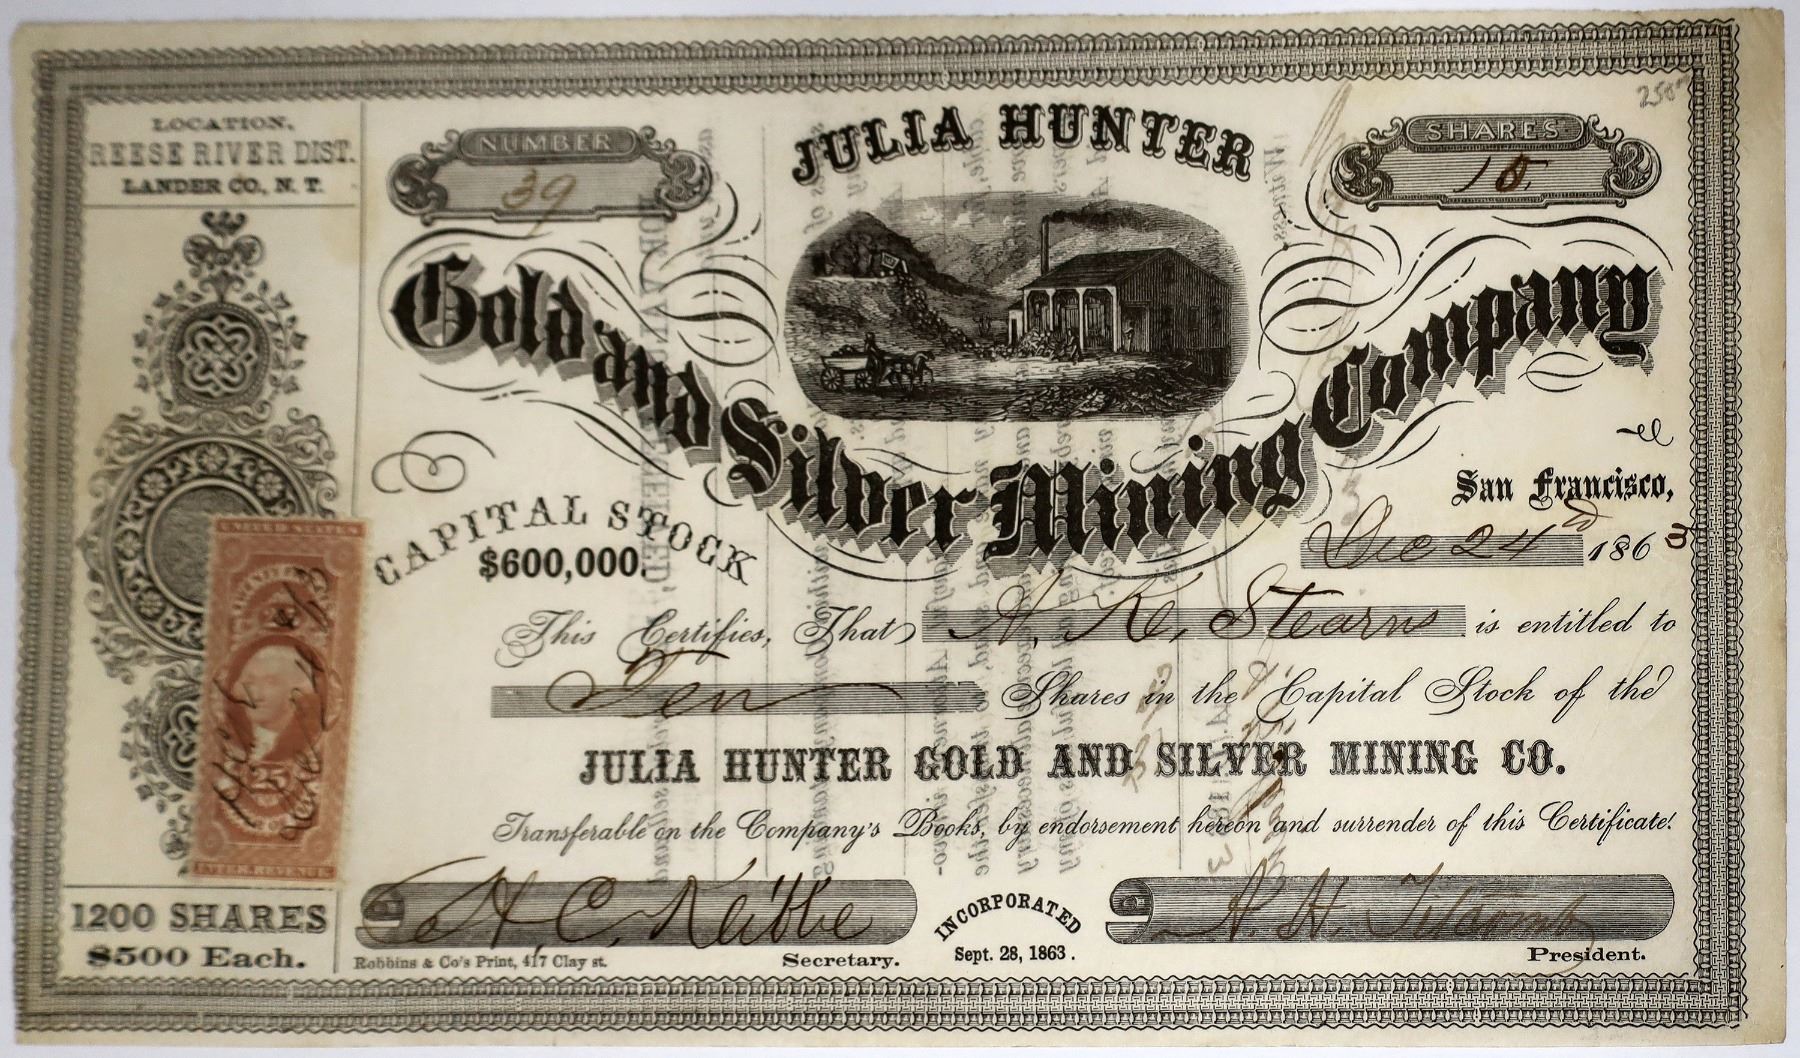 LOCATION.
REESE RIVER DIST.
LANDER CO., N. T.
NUMBER
39
JULIA HUNTER
SHARES
10
250
Gold and Silver Mining Company
CAPITAL STOCK
$600,000.
San Francisco,
Dec 24 1863
This Certifies, That A. K. Stearns is entitled to
Ten Shares in the Capital Stock of the
JULIA HUNTER GOLD AND SILVER MINING CO.
Transferable on the Company's Books, by endorsement hereon and surrender of this Certificate.
UNITED STATES
25
INTER. REVENUE
1200 SHARES
$500 Each.
Robbins & Co's Print, 417 Clay st.
H. C. Kibbe
Secretary.
INCORPORATED
Sept. 28, 1863.
President.